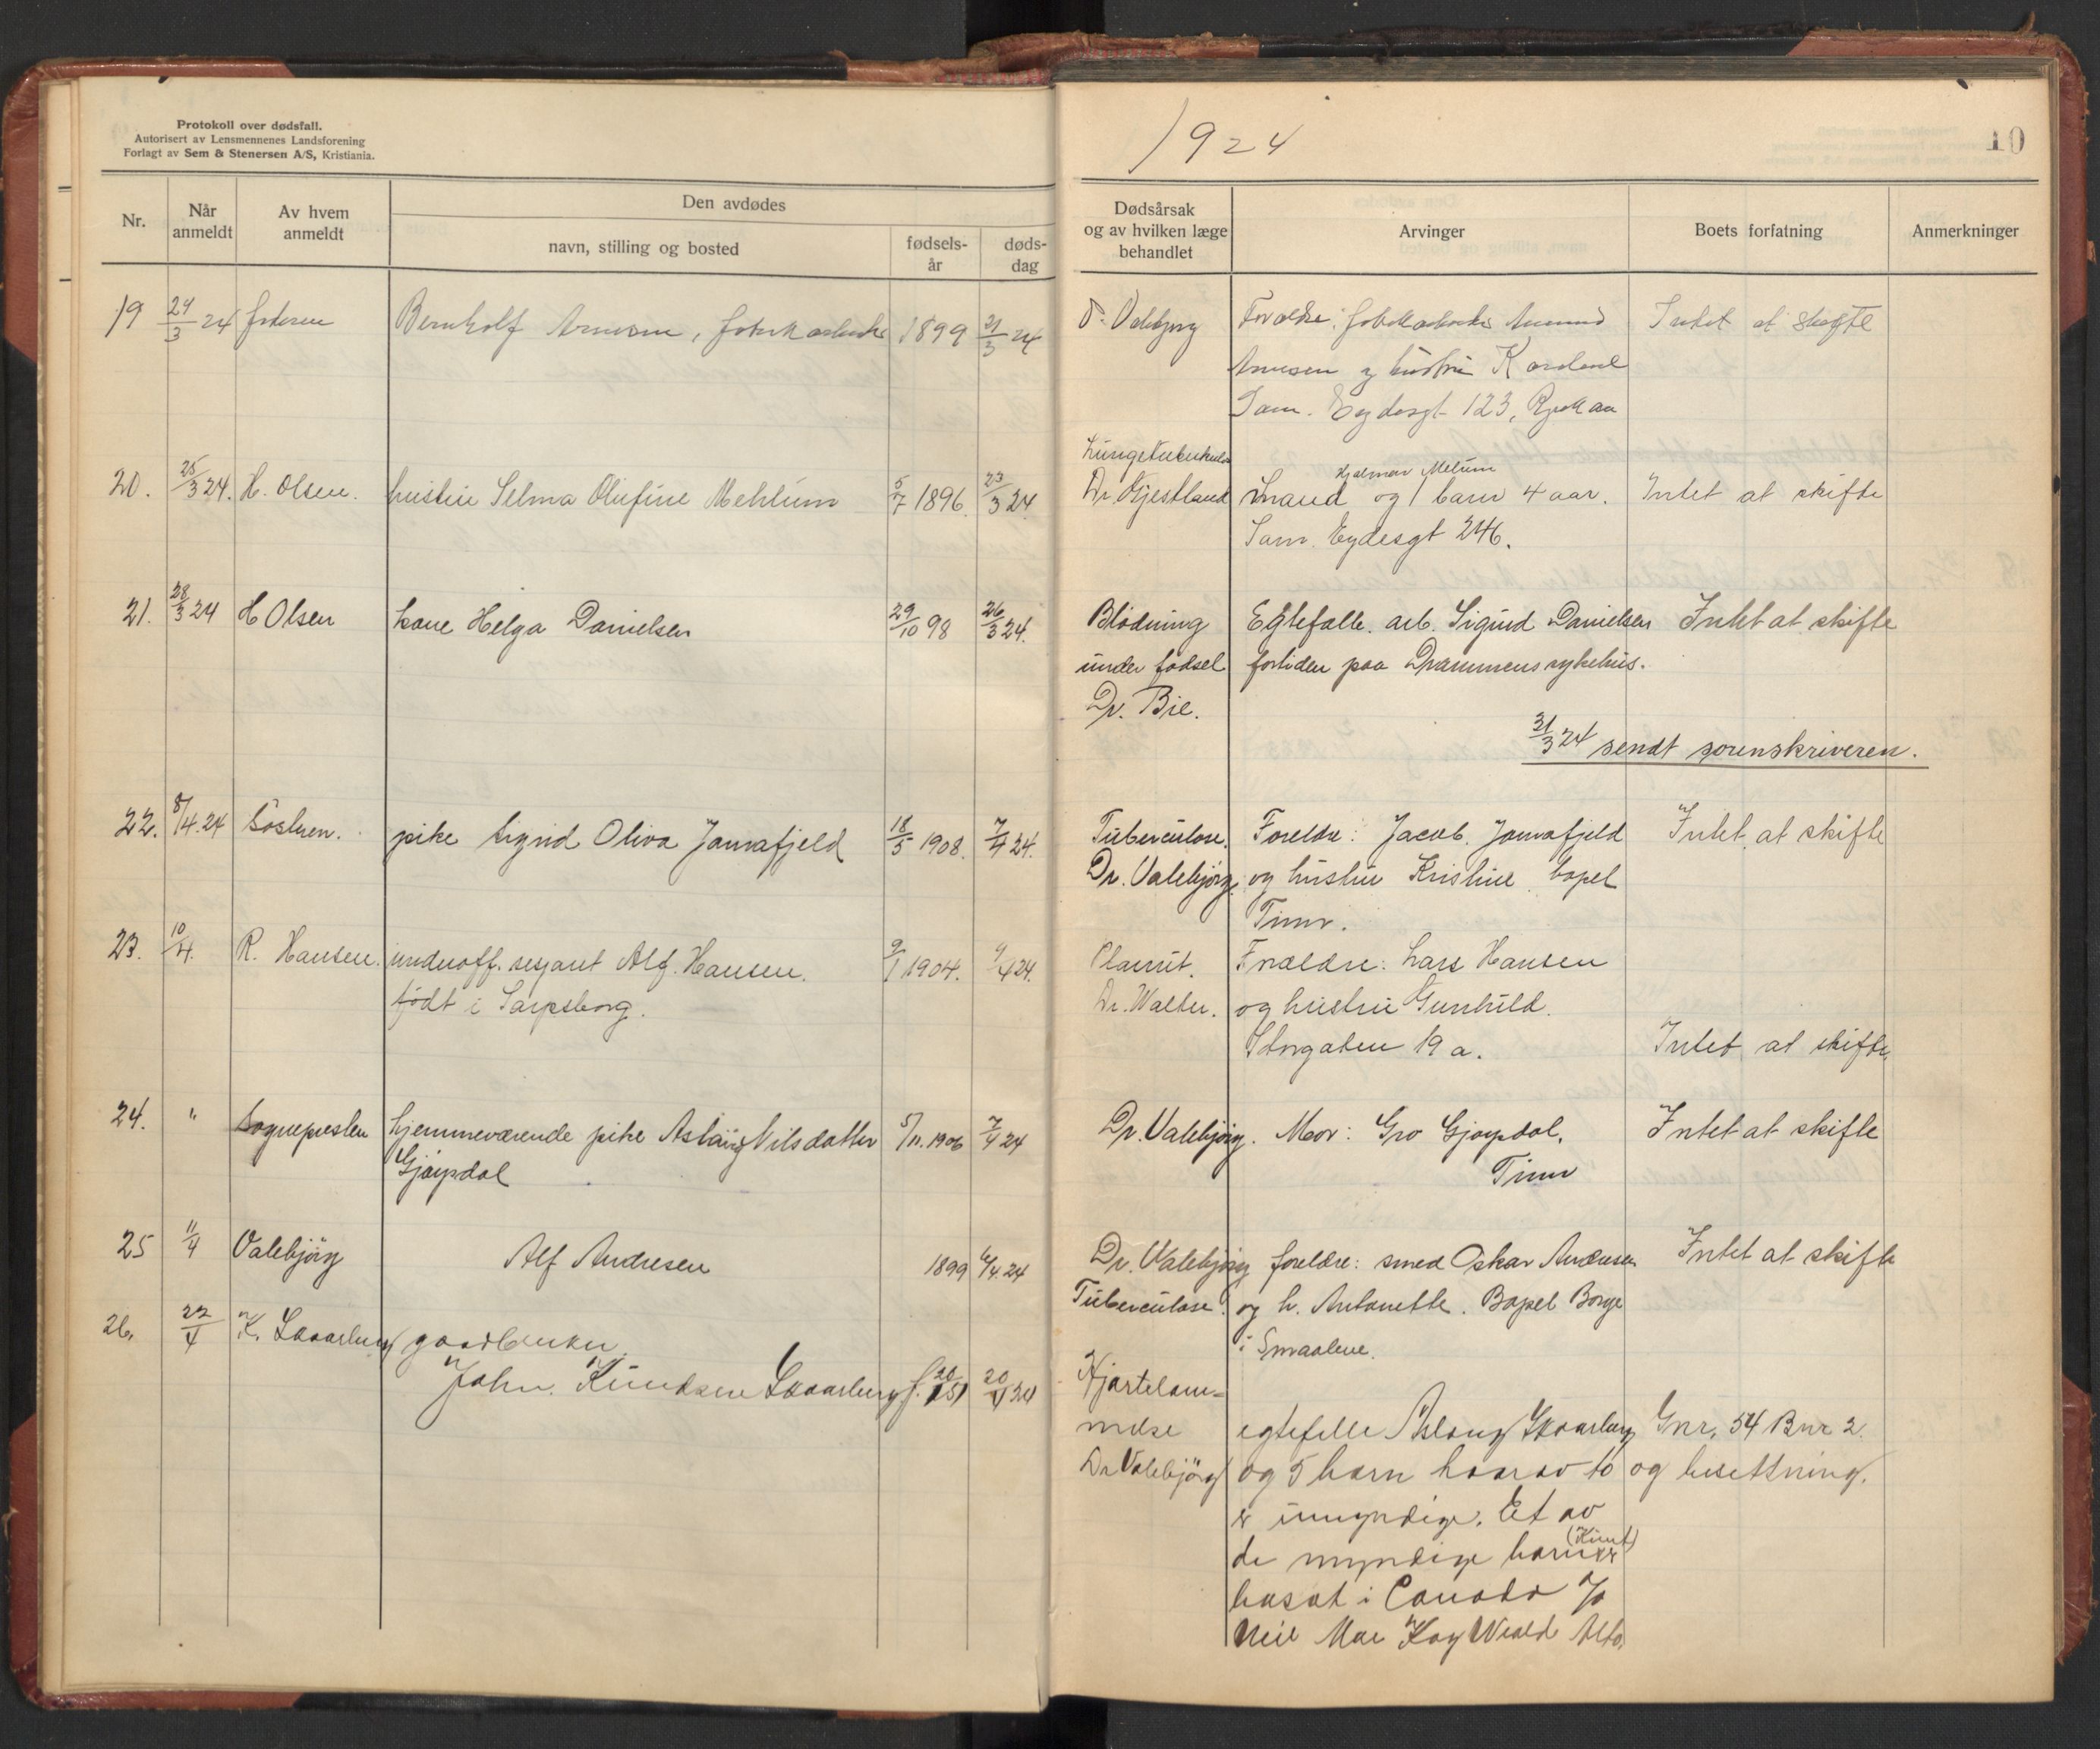 Protokoll over dødsfall.
Autorisert av Lensmennenes Landsforening
Forlagt av Sem & Stenersen A/S, Kristiania.
1924
10
Nr.
Når anmeldt
Av hvem anmeldt
Den avdødes
navn, stilling og bosted
fødsels-år
døds-dag
Dødsårsak og av hvilken læge behandlet
Arvinger
Boets forfatning
Anmerkninger
19 24/3 24 faderen Bernholf Arnesen, fabrikarbeider 1899 21/3 24 Dr. Valebjørg Forældre: fabrikarbeider Amund Intet at skifte
Arnesen og hustru
Sam. Eydesgt 123, Rjukan
Lungetuberkulose
Hjalmar Melum
20. 25/3 24. H. Olsen. hustru Selma Olufine Mehlum 5/7 1896. 23/3 24 Dr Gjestland mand og 1 barn 4 aar. Intet at skifte
Sam. Eydesgt 246.
21. 28/3 24 H Olsen kone Helga Danielsen 29/10 98 26/3 24. Blødning Egtefælle. arb. Sigurd Danielsen Intet at skifte
under fødsel fortiden paa Drammens sykehus.
Dr. Bie.
31/3 24 sendt sorenskriveren.
22. 8/4. 24 Søsteren. pike Sigrid Oliva Jamafjeld 18/5 1908. 7/4 24. Tuberculose. Foreldre: Jacob Jamafjeld Intet at skifte
Dr. Valebjørg. og hustru Kristine bopel
Tinn.
23. 10/4. R. Hansen. underoff. sersjant Alf. Hansen. 9/1 1904. 9/4 24. Forældre: Lars Hansen
født i Sarpsborg. Dr. Walter. og hustru Gunhild.
Storgaten 19 a. Intet at skifte
24. " Sognepresten hjemmeværende pike Aslaug Nilsdatter 5/11. 1906 7/4 24 Dr. Valebjørg. Mor: Gro Gjøysdal. Intet at skifte
Gjøysdal Tinn
25 11/4 Valebjørg Alf Andresen 1899 6/4. 24 Dr. Valebjørg foreldre: smed Oskar Andresen Intet at skifte
Tuberculose. og h. Antonette. Bopel Borge
i Smaalene.
26. 22/4 K. Skaarberg gaardbruker
John. Knudsen Skaarberg f. 20/ 51 20/4 24 Hjertelam-
melse egtefelle Aslaug Skaarberg Gnr. 54 Bnr 2.
Dr Valebjørg og 5 barn hvorav to og besettning.
er umyndige. Et av
de myndige barn (Knut) er
bosat i Canada
Neil Mac Kay Weald Alta.